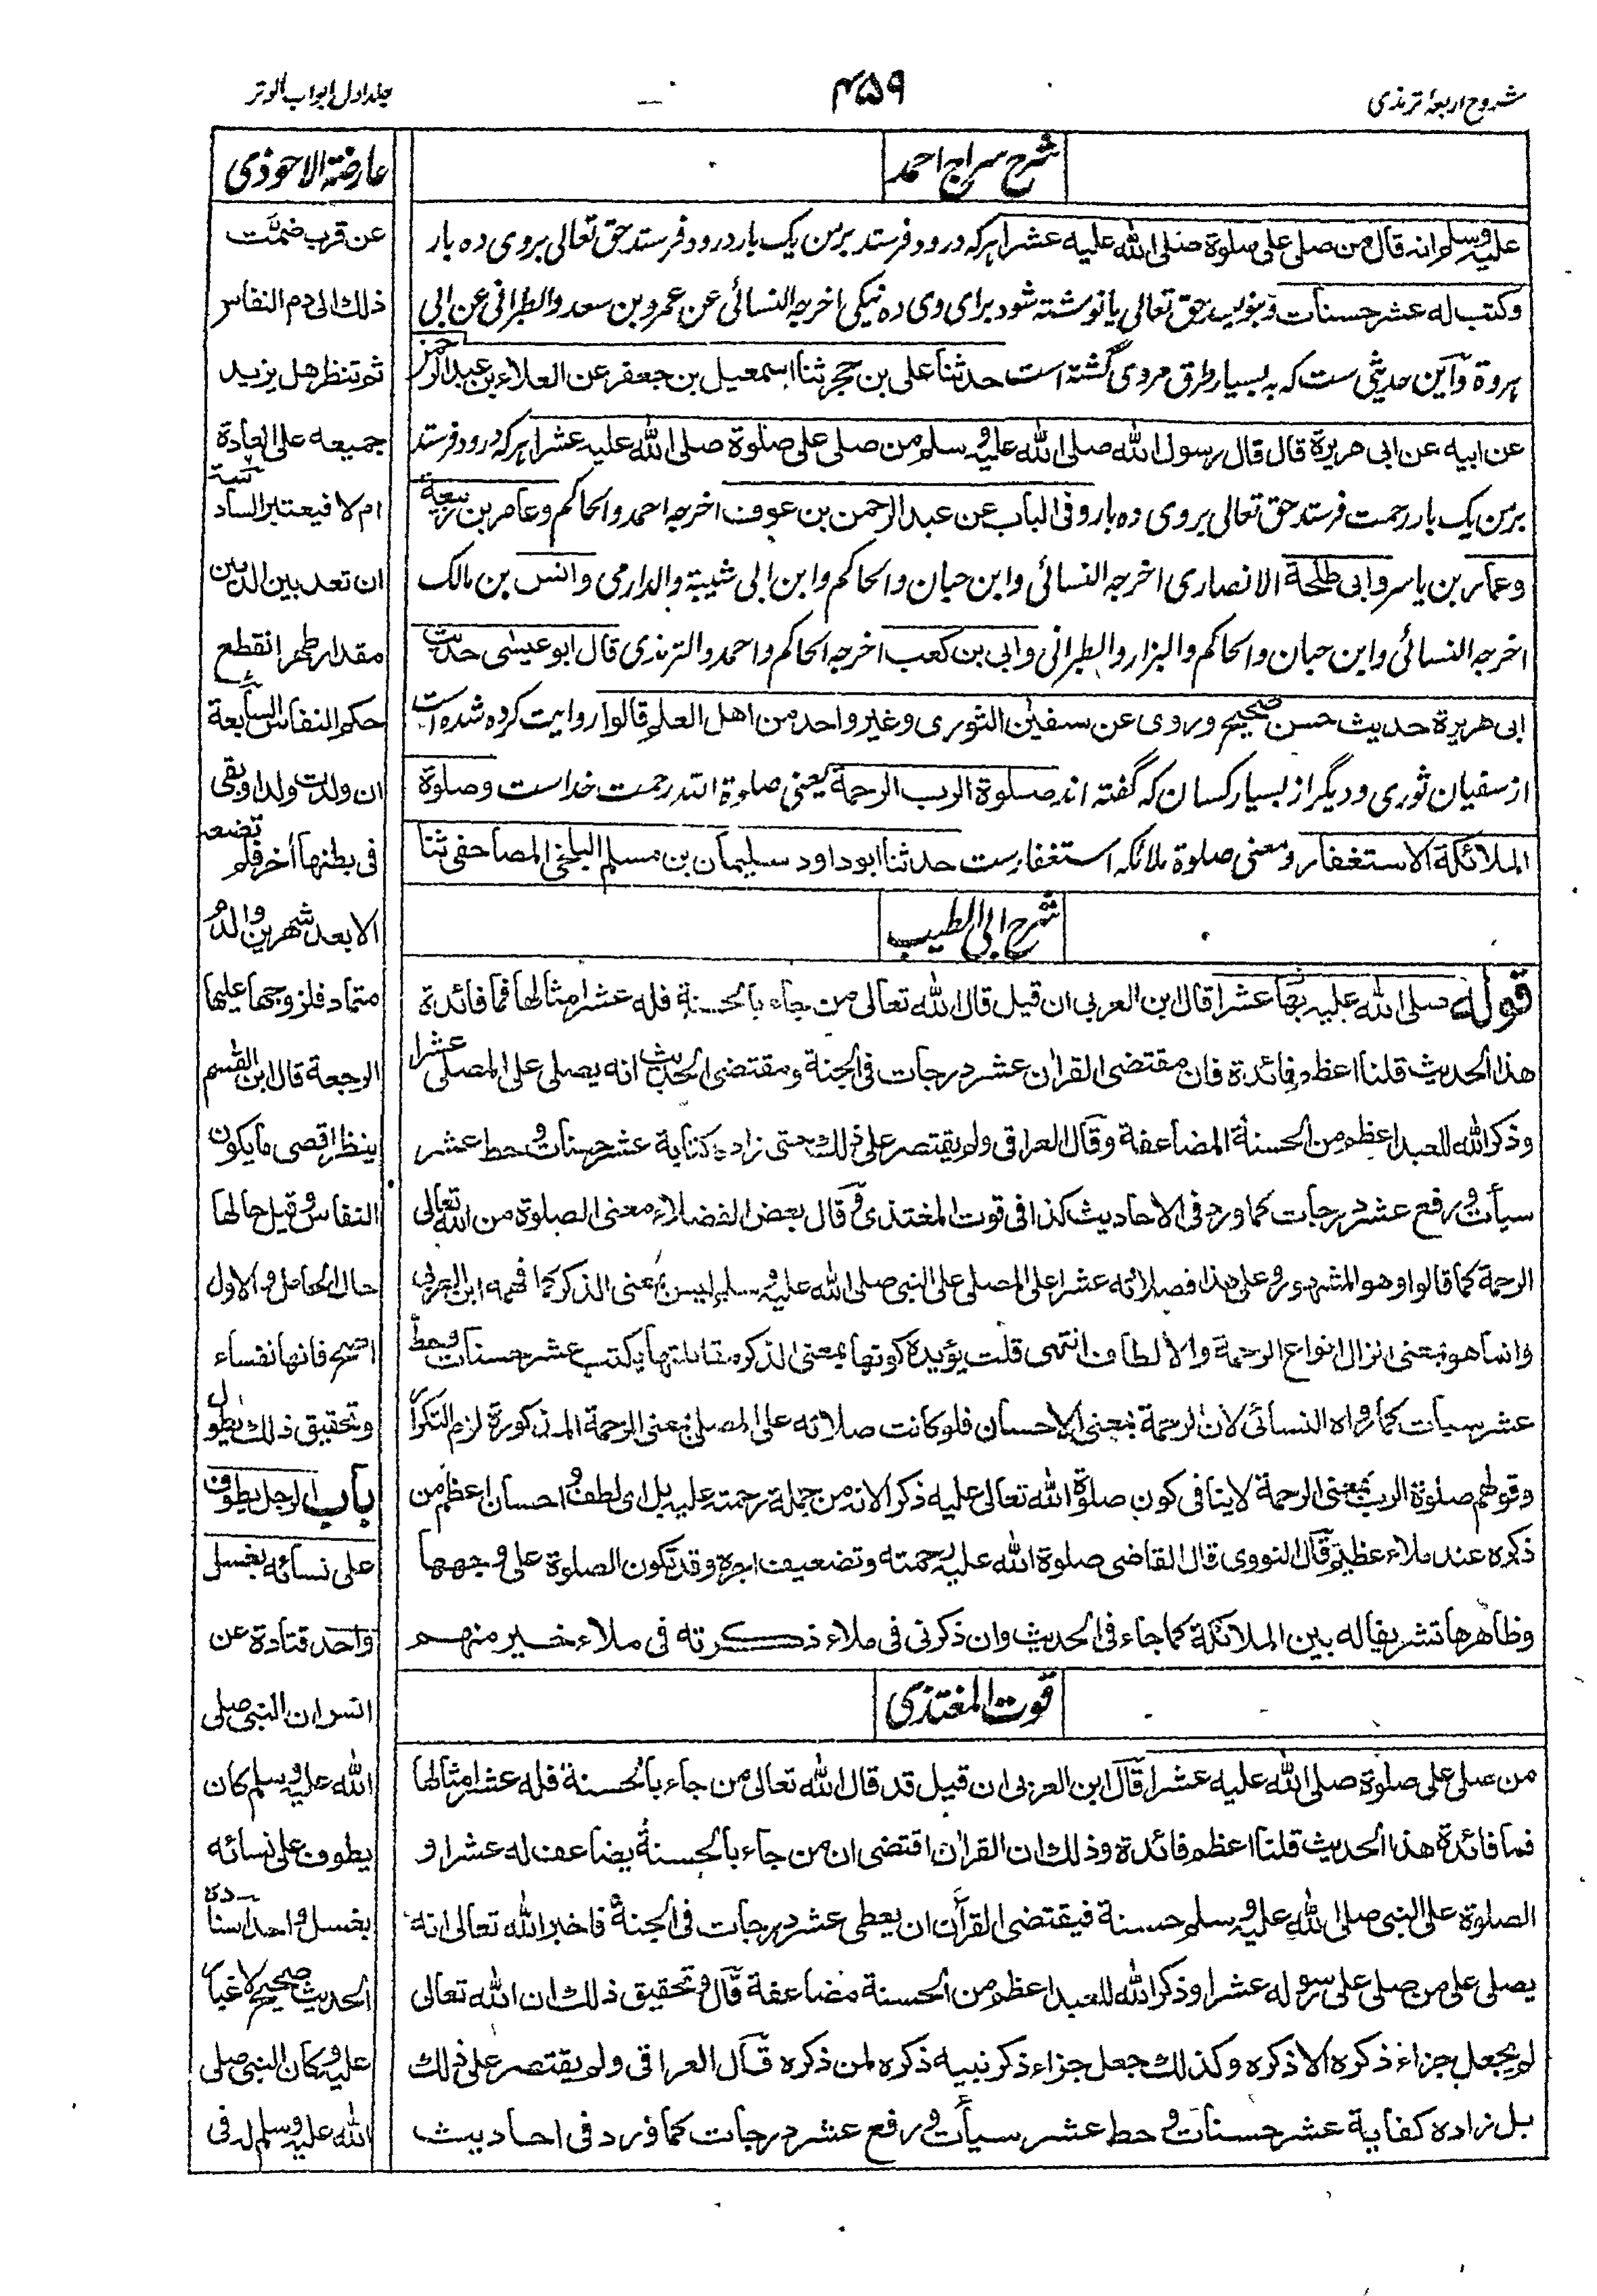 شروح اربعۂ ترمذی
۴۵۹
جلد اول ابواب الوتر
شرح سراج احمد
علیه وسلم انه قال من صلی علی صلوة صلی الله علیه عشرا هر که درود فرستد بر من یک بار درود فرستد حق تعالی بر وی ده بار
وکتب له عشر حسنات و بنویسد حق تعالی یا نوشته شود برای وی ده نیکی اخرجه النسائی عن عمرو بن سعد والطبرانی عن ابی
بردة و این حدیثی ست که به بسیار طرق مروی گشته است حدثنا علی بن حجر ثنا اسمعیل بن جعفر عن العلاء بن عبد الرحمن
عن ابیه عن ابی هریرة قال قال رسول الله صلی الله علیه وسلم من صلی علی صلوة صلی الله علیه عشرا هر که درود فرستد
بر من یک بار رحمت فرستد حق تعالی بر وی ده بار وفی الباب عن عبد الرحمن بن عوف اخرجه احمد والحاکم وعامر بن ربیعة
وعمار بن یاسر وابی طلحة الانصاری اخرجه النسائی وابن حبان والحاکم وابن ابی شیبة والدارمی وانس بن مالک
اخرجه النسائی وابن حبان والحاکم والبزار والطبرانی وابی بن کعب اخرجه الحاکم واحمد والترمذی قال ابو عیسی حدیث
ابی هریرة حدیث حسن صحیح وروی عن سفین الثوری وغیر واحد من اهل العلم قالوا روایت کرده شده است
از سفیان ثوری و دیگر از بسیار کسان که گفته اند صلوة الرب الرحمة یعنی صلوة الله رحمت خداست وصلوة
الملائکة الاستغفار ومعنی صلوة ملائکه استغفارست حدثنا ابو داود سلیمان بن مسلم البلخی المصاحفی ثنا
شرح ابی الطیب
قوله صلی الله علیه بها عشرا قال ابن العربی ان قیل قال الله تعالی من جاء بالحسنة فله عشر امثالها فما فائدة
هذا الحدیث قلنا اعظم فائدة فان مقتضی القران عشر درجات فی الجنة ومقتضی الحدیث انه یصلی علی المصلی عشرا
وذکر الله للعبد اعظم من الحسنة المضاعفة وقال العراقی ولم یقتصر علی ذلک حتی زاده کتابة عشر حسنات وحط عشر
سیأت ورفع عشر درجات کما ورد فی الاحادیث کذا فی قوت المغتذی وقال بعض الفضلاء معنی الصلوة من الله تعالی
الرحمة کما قالوا وهو المشهور وعلی هذا فصلاته عشرا علی المصلی علی النبی صلی الله علیه وسلم لیس بمعنی الذکر کما فهمه ابن العربی
وانما هو بمعنی انزال انواع الرحمة والالطاف انتهی قلت یؤیده کونها بمعنی الذکر مقابلتها یکتب عشر حسنات وحط
عشر سیات کما رواه النسائی لان الرحمة بمعنی الاحسان فلو کانت صلاته علی المصلی بمعنی الرحمة المذکورة لزم التکرار
وقولهم صلوة الرب بمعنی الرحمة لاینافی کون صلوة الله تعالی علیه ذکرا لانه من جملة رحمته علیه بل ای لطف واحسان اعظم من
ذکره عند ملاء عظیم وقال النووی قال القاضی صلوة الله علیه رحمته وتضعیف اجره وقد تکون الصلوة علی وجهها
وظاهرها تشریفا له بین الملائکة کما جاء فی الحدیث وان ذکرنی فی ملاء ذکرته فی ملاء خیر منهم
قوت المغتذی
من صلی علی صلوة صلی الله علیه عشرا قال ابن العربی ان قیل قد قال الله تعالی من جاء بالحسنة فله عشر امثالها
فما فائدة هذا الحدیث قلنا اعظم فائدة وذلک ان القران اقتضی ان من جاء بالحسنة یضاعف له عشرا و
الصلوة علی النبی صلی الله علیه وسلم حسنة فیقتضی القرآن ان یعطی عشر درجات فی الجنة فاخبر الله تعالی انه
یصلی علی من صلی علی رسوله عشرا وذکر الله للعبد اعظم من الحسنة مضاعفة قال وتحقیق ذلک ان الله تعالی
لم یجعل جزاء ذکره الا ذکره وکذلک جعل جزاء ذکر نبیه ذکره لمن ذکره قال العراقی ولم یقتصر علی ذلک
بل زاده کفایة عشر حسنات وحط عشر سیأت ورفع عشر درجات کما ورد فی احادیث
عارضة الاحوذی
عن قرب ضمّت
ذلک الی دم النفاس
ثم تنظر هل یزید
جمیعه علی العادة
ام لا فیعتبر السادسة
ان تعد بین الدمین
مقدار طهر انقطع
حکم النفاس السابعة
ان ولدت ولدا وبقی
فی بطنها أخر فلم تضعه
الا بعد شهرین والدم
متماد فلزوجها علیها
الرجعة قال ابن القسم
ینظر اقصی مایکون
النفاس وقیل حالها
حال الحامل والاول
اصح فانها نفساء
وتحقیق ذلک یطول
باب الرجل یطوف
علی نسائه بغسل
واحد قتادة عن
انس ان النبی صلی
الله علیه وسلم کان
یطوف علی نسائه
بغسل واحد اسناده
الحدیث صحیح لاغبار
علیه وکان النبی صلی
الله علیه وسلم له فی